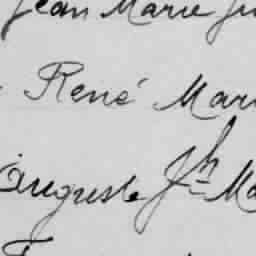 Jean Marie
René Mari
Auguste Jh Ma